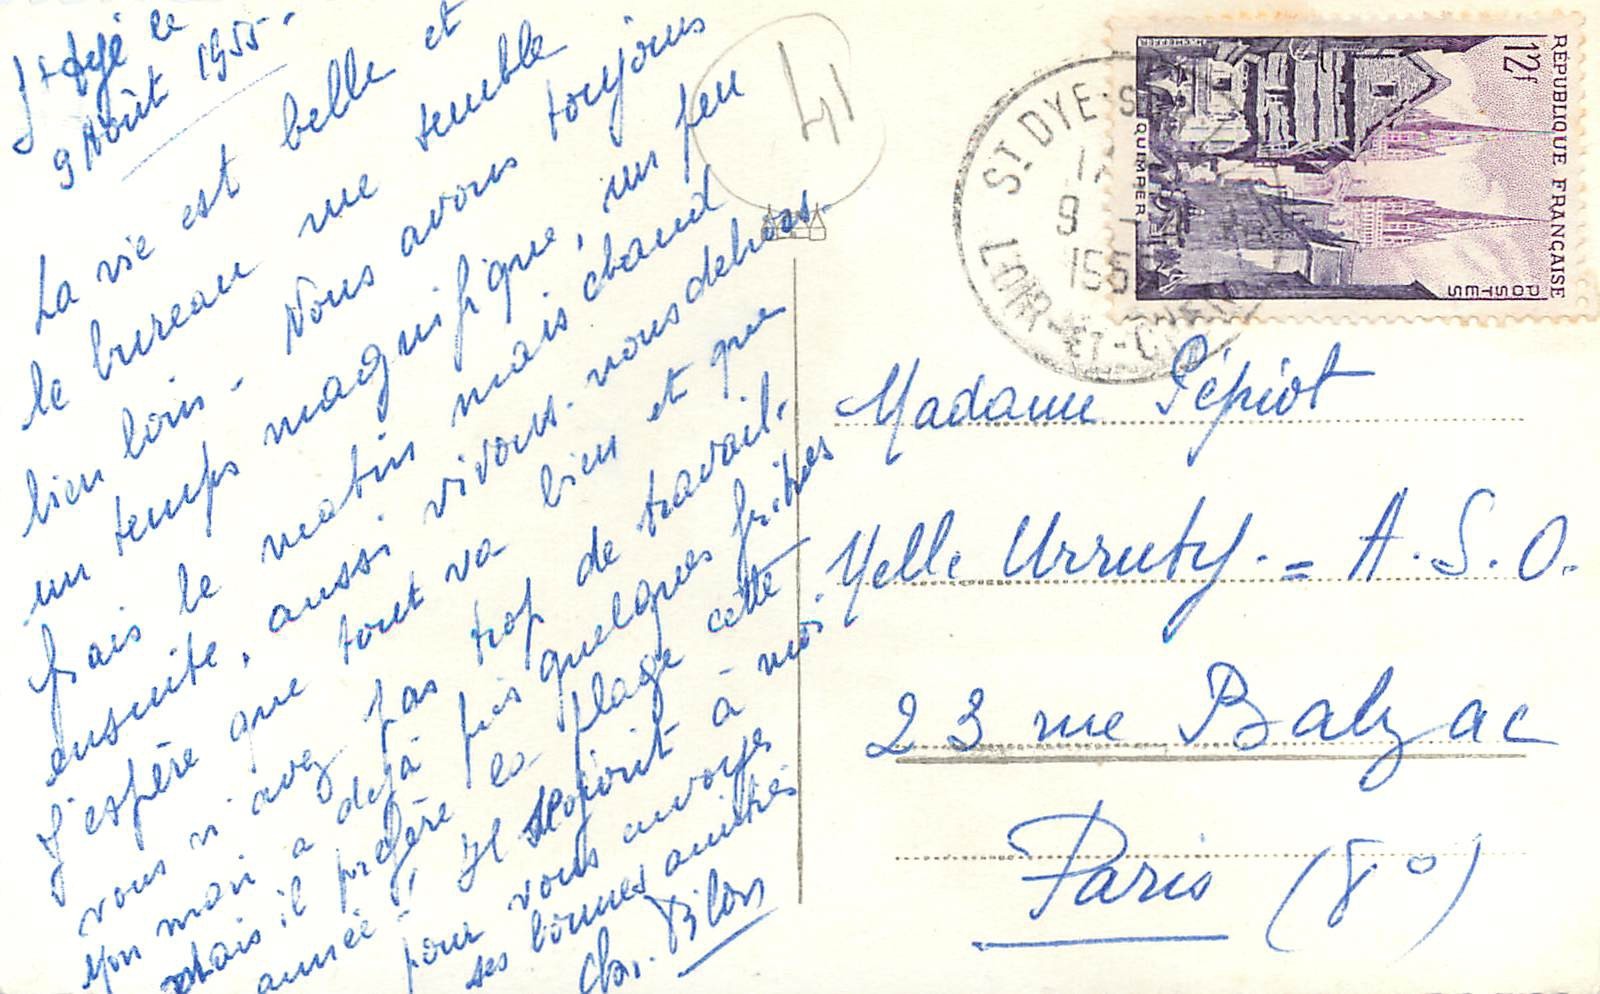 St Dyé le
9 Août 1955.
La vie est belle et
le bureau me semble
bien loin. Nous avons toujours
un temps magnifique, un peu
frais le matin mais chaud
ensuite, aussi vivons-nous dehors.
J'espère que tout va bien et que
vous n'avez pas trop de travail.
Mon mari a déjà pris quelques fritures
mais il préfère la plage cette
année, Il se joint à moi
pour vous envoyer
ses bonnes amitiés
Chr. Bilon
41
ST DYE-S
17
9 -
195
LOIR-ET-CHER
RÉPUBLIQUE FRANÇAISE
12f
POSTES
QUIMPER
H. CHEFFER
Madame Pépiot
Melle Urruty. = A.S.O.
23 rue Balzac
Paris (8°)